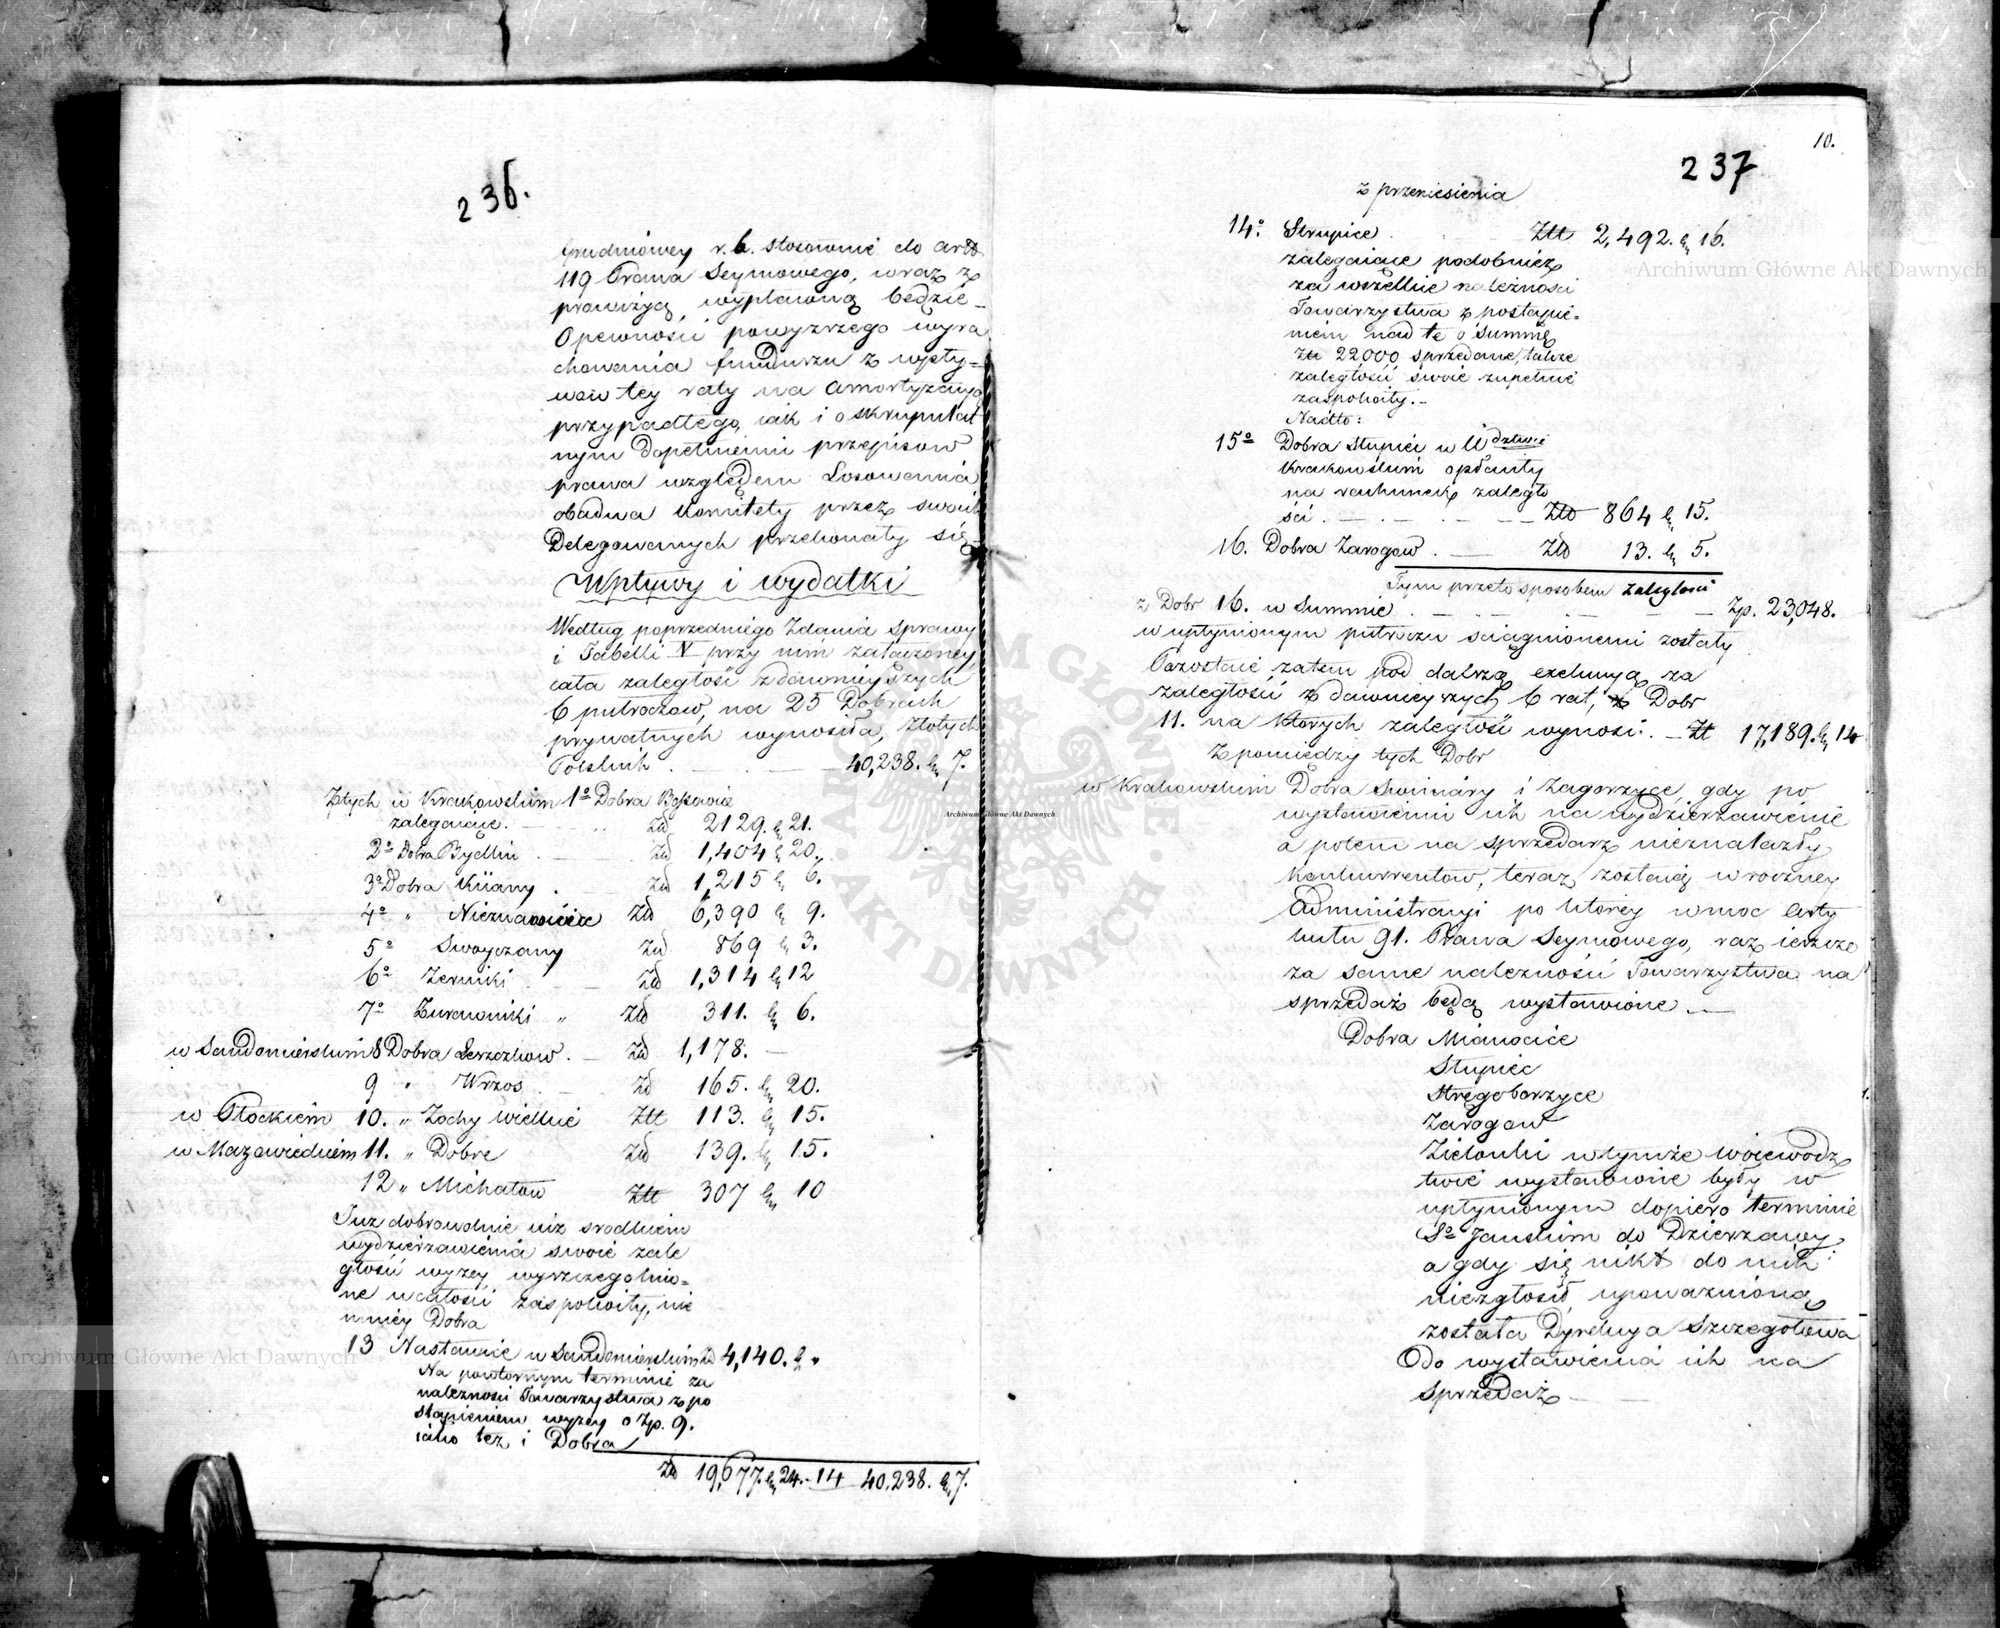 236.
Grudniowey r. b. stosownie do art
119 Prawa Seymowego, wraz z
prowizyą, wypłaconą będzie –
O pewności powyzszego wyra
chowania funduszu z wpły=
wow tey raty na amortyzacyą
przypadłego, iak i o skrupulat
nym dopełnieniu przepisow
prawa względem Losowania
obadwa Komitety przez swoich
Delegowanych przekonały się
Wpływy i wydatki
Według poprzedniego Zdania sprawy
i Tabelli IV przy nim załączoney
cała zaległość z dawnieyszych
6 pułroczow, na 25 Dobrach
prywatnych wynosiła, Złotych
Polskich . — . — 40,238. g. 7.
Z tych w Krakowskim 1º Dobra
zalegaiące . — Zł 2129. g. 21.
2º Dobra Bydlin . — Zł 1,404 g 20.
3º Dobra Kiiany . — Zł 1,215 g. 6.
4º " Nieznanowice Zł 6,390 g 9.
5º Swoyczany Zł 869 g 3.
6º Zerniki . — Zł 1,314 g 12
7º Zurawniki " Zł 311. g. 6.
w Sandomierskim 8 Dobra . — Zł 1,178. —
9 " Wrzos — Zł 165. g. 20.
w Płockiem 10. " Zochy Wielkie Złt 113. g. 15.
w Mazowieckiem 11. " Dobre Zł 139. g. 15.
12 " Michałow Złt 307 g. 10
Juz dobrowolnie iuz srodkiem
wydzierzawienia swoie zale
głości wyzey wyszczegolnio=
ne w całości zaspokoiły, nie
mniey Dobra
13 Nastawice w Sandomierskim Zł 4,140. g "
Na powtornym terminie za
nalezności Towarzystwa z po
stąpieniem wyzey o Zp. 9.
iako tez i Dobra
Zł 19,677. g. 24. – 14 40,238. g. 7.
10.
237
z przeniesienia
14º. Strupice . Złt 2,492. g. 16.
zalegaiące podobniez
za wszelkie należności
Towarzystwa z postąpie=
niem nad te o Summę
Zł 22000 sprzedane, także
zaległość swoie zupełnie
zaspokoiły. –
Nadto:
15º Dobra Słupiec w Wdztwie
Krakowskim opłaciły
na rachunek zaległo
ści . — . — . — . — — Złt 864 g. 15.
16. Dobra Zarogow . — Złt 13. g. 5.
Tym przeto sposobem zaległości
z Dobr 16. w Summie . — . — . — Zp. 23,048.
w upłynionym pułroczu sciągnionemi zostały
Pozostaie zatem pod dalszą exekucyą za
zaległość z dawnieyszych 6 rat, z Dobr
11. na ktorych zaległość wynosi: – Zł 17,189. g. 14
Z pomiędzy tych Dobr
w Krakowskim Dobra Swiniary i Zagorzyce, gdy po
wystawieniu ich na wydzierzawienie
a potem na sprzedarz nieznalazły
konkurrentow, teraz zostaią w roczney
Administracyi po ktorey w moc Arty
kułu 91. Prawa Seymowego, raz ieszcze
za same nalezności Towarzystwa na
sprzedaż będą wystawione. —
Dobra Mianocice
Słupiec
Stręgoborzyce
Zarogow
Zielonki w tymże Woiewodz
twie wystawione były w
upłynionym dopiero terminie
So Janskim do Dzierzawy,
a gdy się nikt do nich
niezgłosił, upoważnioną
została Dyrekcya Szczegołowa
do wystawienia ich na
sprzedaż —
Archiwum Główne Akt Dawnych
Archiwum Główne Akt Dawnych
Archiwum Główne Akt Dawnych
ARCHIWUM GŁÓWNE · AKT DAWNYCH ·